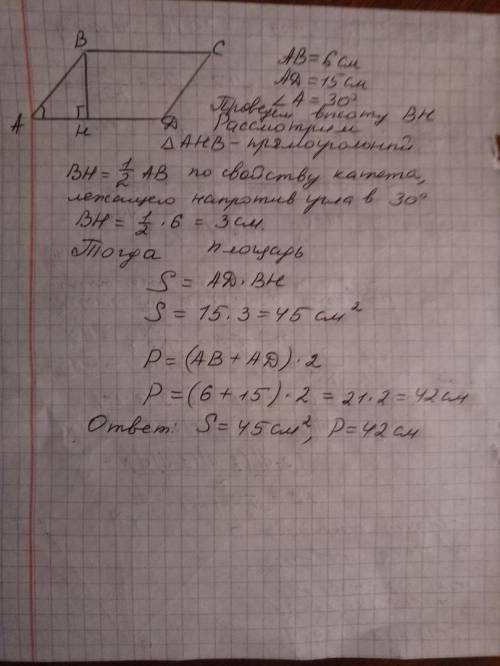 B C
A H D
AB = 6 см
AD = 15 см
∠A = 30°
Проведём высоту BH
Рассмотрим
△AHB - прямоугольный
BH = 1/2 AB по свойству катета,
лежащего напротив угла в 30°
BH = 1/2 · 6 = 3 см.
Тогда площадь
S = AD · BH
S = 15 · 3 = 45 см²
P = (AB + AD) · 2
P = (6 + 15) · 2 = 21 · 2 = 42 см
Ответ: S = 45 см², P = 42 см